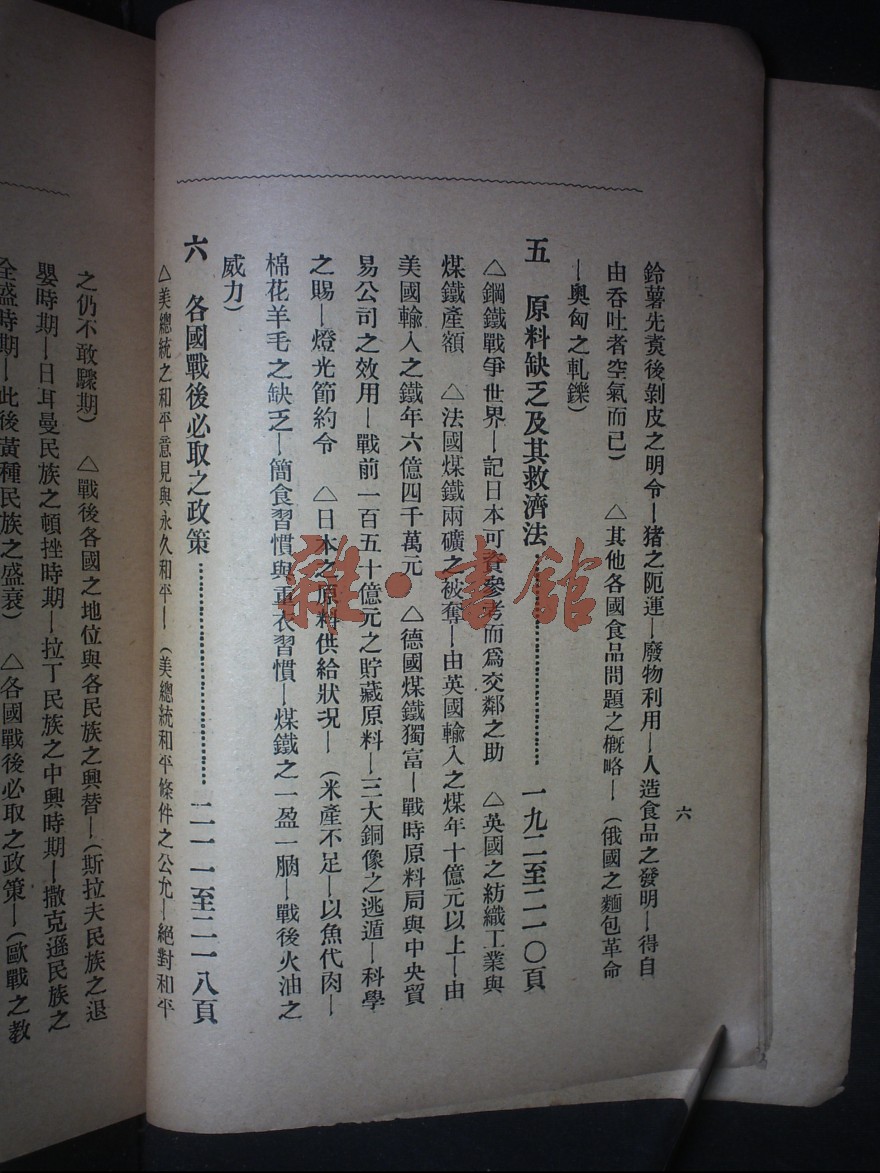 六
鈴薯先煑後剝皮之明令—猪之阨運—廢物利用—人造食品之發明—得自
由呑吐者空氣而已）　△其他各國食品問題之槪略—（俄國之麵包革命
—奧匈之軋鑠）
五　原料缺乏及其救濟法……………………一九二至二一〇頁
△鋼鐵戰爭世界—記日本可資參考而爲交鄰之助　△英國之紡織工業與
煤鐵產額　△法國煤鐵兩礦之被奪—由英國輸入之煤年十億元以上—由
美國輸入之鐵年六億四千萬元　△德國煤鐵獨富—戰時原料局與中央貿
易公司之效用—戰前一百五十億元之貯藏原料—三大銅像之逃遁—科學
之賜—燈光節約令　△日本之原料供給狀況—（米產不足—以魚代肉—
棉花羊毛之缺乏—簡食習慣與重衣習慣—煤鐵之一盈一朒—戰後火油之
威力）
六　各國戰後必取之政策……………………二一一至二一八頁
△美總統之和平意見與永久和平—（美總統和平條件之公允—絕對和平
之仍不敢驟期）　△戰後各國之地位與各民族之興替—（斯拉夫民族之退
嬰時期—日耳曼民族之頓挫時期—拉丁民族之中興時期—撒克遜民族之
全盛時期—此後黃種民族之盛衰）　△各國戰後必取之政策—（歐戰之教
雜·書館